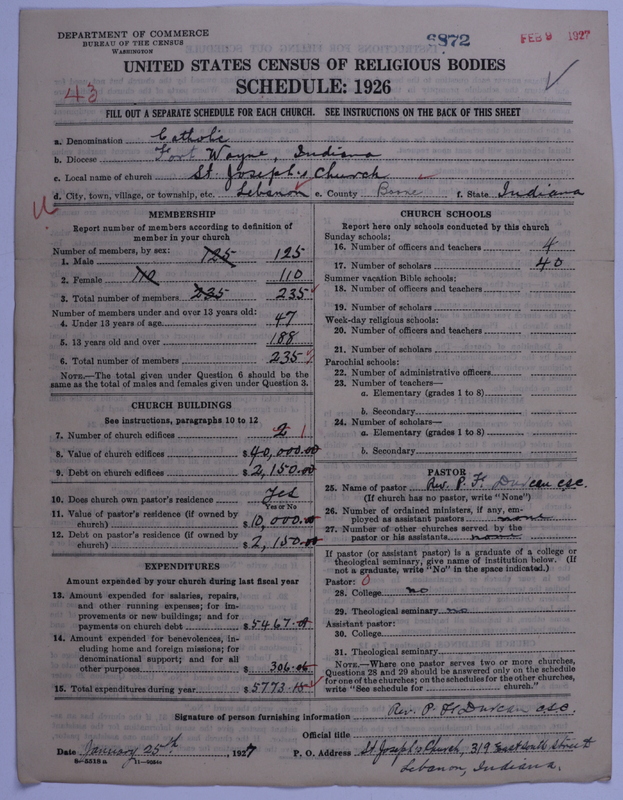 DEPARTMENT OF COMMERCE
BUREAU OF THE CENSUS
WASHINGTON
6872
FEB 9 1927
UNITED STATES CENSUS OF RELIGIOUS BODIES
SCHEDULE: 1926
43
FILL OUT A SEPARATE SCHEDULE FOR EACH CHURCH. SEE INSTRUCTIONS ON THE BACK OF THIS SHEET
a. Denomination Catholic
b. Diocese Fort Wayne, Indiana
c. Local name of church St. Joseph's Church
d. City, town, village, or township, etc. Lebanon e. County Boone f. State Indiana
MEMBERSHIP
Report number of members according to definition of
member in your church
Number of members, by sex:
1. Male 125 125
2. Female 110 110
3. Total number of members 235 235
Number of members under and over 13 years old:
4. Under 13 years of age 47
5. 13 years old and over 188
6. Total number of members 235
NOTE.—The total given under Question 6 should be
same as the total of males and females given under Question 3.
CHURCH BUILDINGS
See instructions, paragraphs 10 to 12
7. Number of church edifices 2 1
8. Value of church edifices $40,000.00
9. Debt on church edifices $2,150.00
10. Does church own pastor's residence Yes
Yes or No
11. Value of pastor's residence (if owned by
church) $10,000.00
12. Debt on pastor's residence (if owned by
church) $2,150.00
EXPENDITURES
Amount expended by your church during last fiscal year
13. Amount expended for salaries, repairs,
and other running expenses; for im-
provements or new buildings; and for
payments on church debt $5467.09
14. Amount expended for benevolences, in-
cluding home and foreign missions; for
denominational support; and for all
other purposes $306.06
15. Total expenditures during year $5773.15
CHURCH SCHOOLS
Report here only schools conducted by this church
Sunday schools:
16. Number of officers and teachers 4
17. Number of scholars 40
Summer vacation Bible schools:
18. Number of officers and teachers
19. Number of scholars
Week-day religious schools:
20. Number of officers and teachers
21. Number of scholars
Parochial schools:
22. Number of administrative officers
23. Number of teachers—
a. Elementary (grades 1 to 8)
b. Secondary
24. Number of scholars—
a. Elementary (grades 1 to 8)
b. Secondary
PASTOR
25. Name of pastor Rev. P. H. Duncan csc.
(If church has no pastor, write "None")
26. Number of ordained ministers, if any, em-
ployed as assistant pastors none
27. Number of other churches served by the
pastor or his assistants none
If pastor (or assistant pastor) is a graduate of a college or
theological seminary, give name of institution below. (If
not a graduate, write "No" in the space indicated.)
Pastor: 0
28. College no
29. Theological seminary no
Assistant pastor:
30. College
31. Theological seminary
NOTE.—Where one pastor serves two or more churches,
Questions 28 and 29 should be answered only on the schedule
for one of the churches; on the schedules for the other churches,
write "See schedule for church."
Signature of person furnishing information Rev. P. H. Duncan csc.
Official title
Date January 25th, 1927 P. O. Address St Joseph's Church, 319 East South Street
8—5518a 11—9054a Lebanon, Indiana.